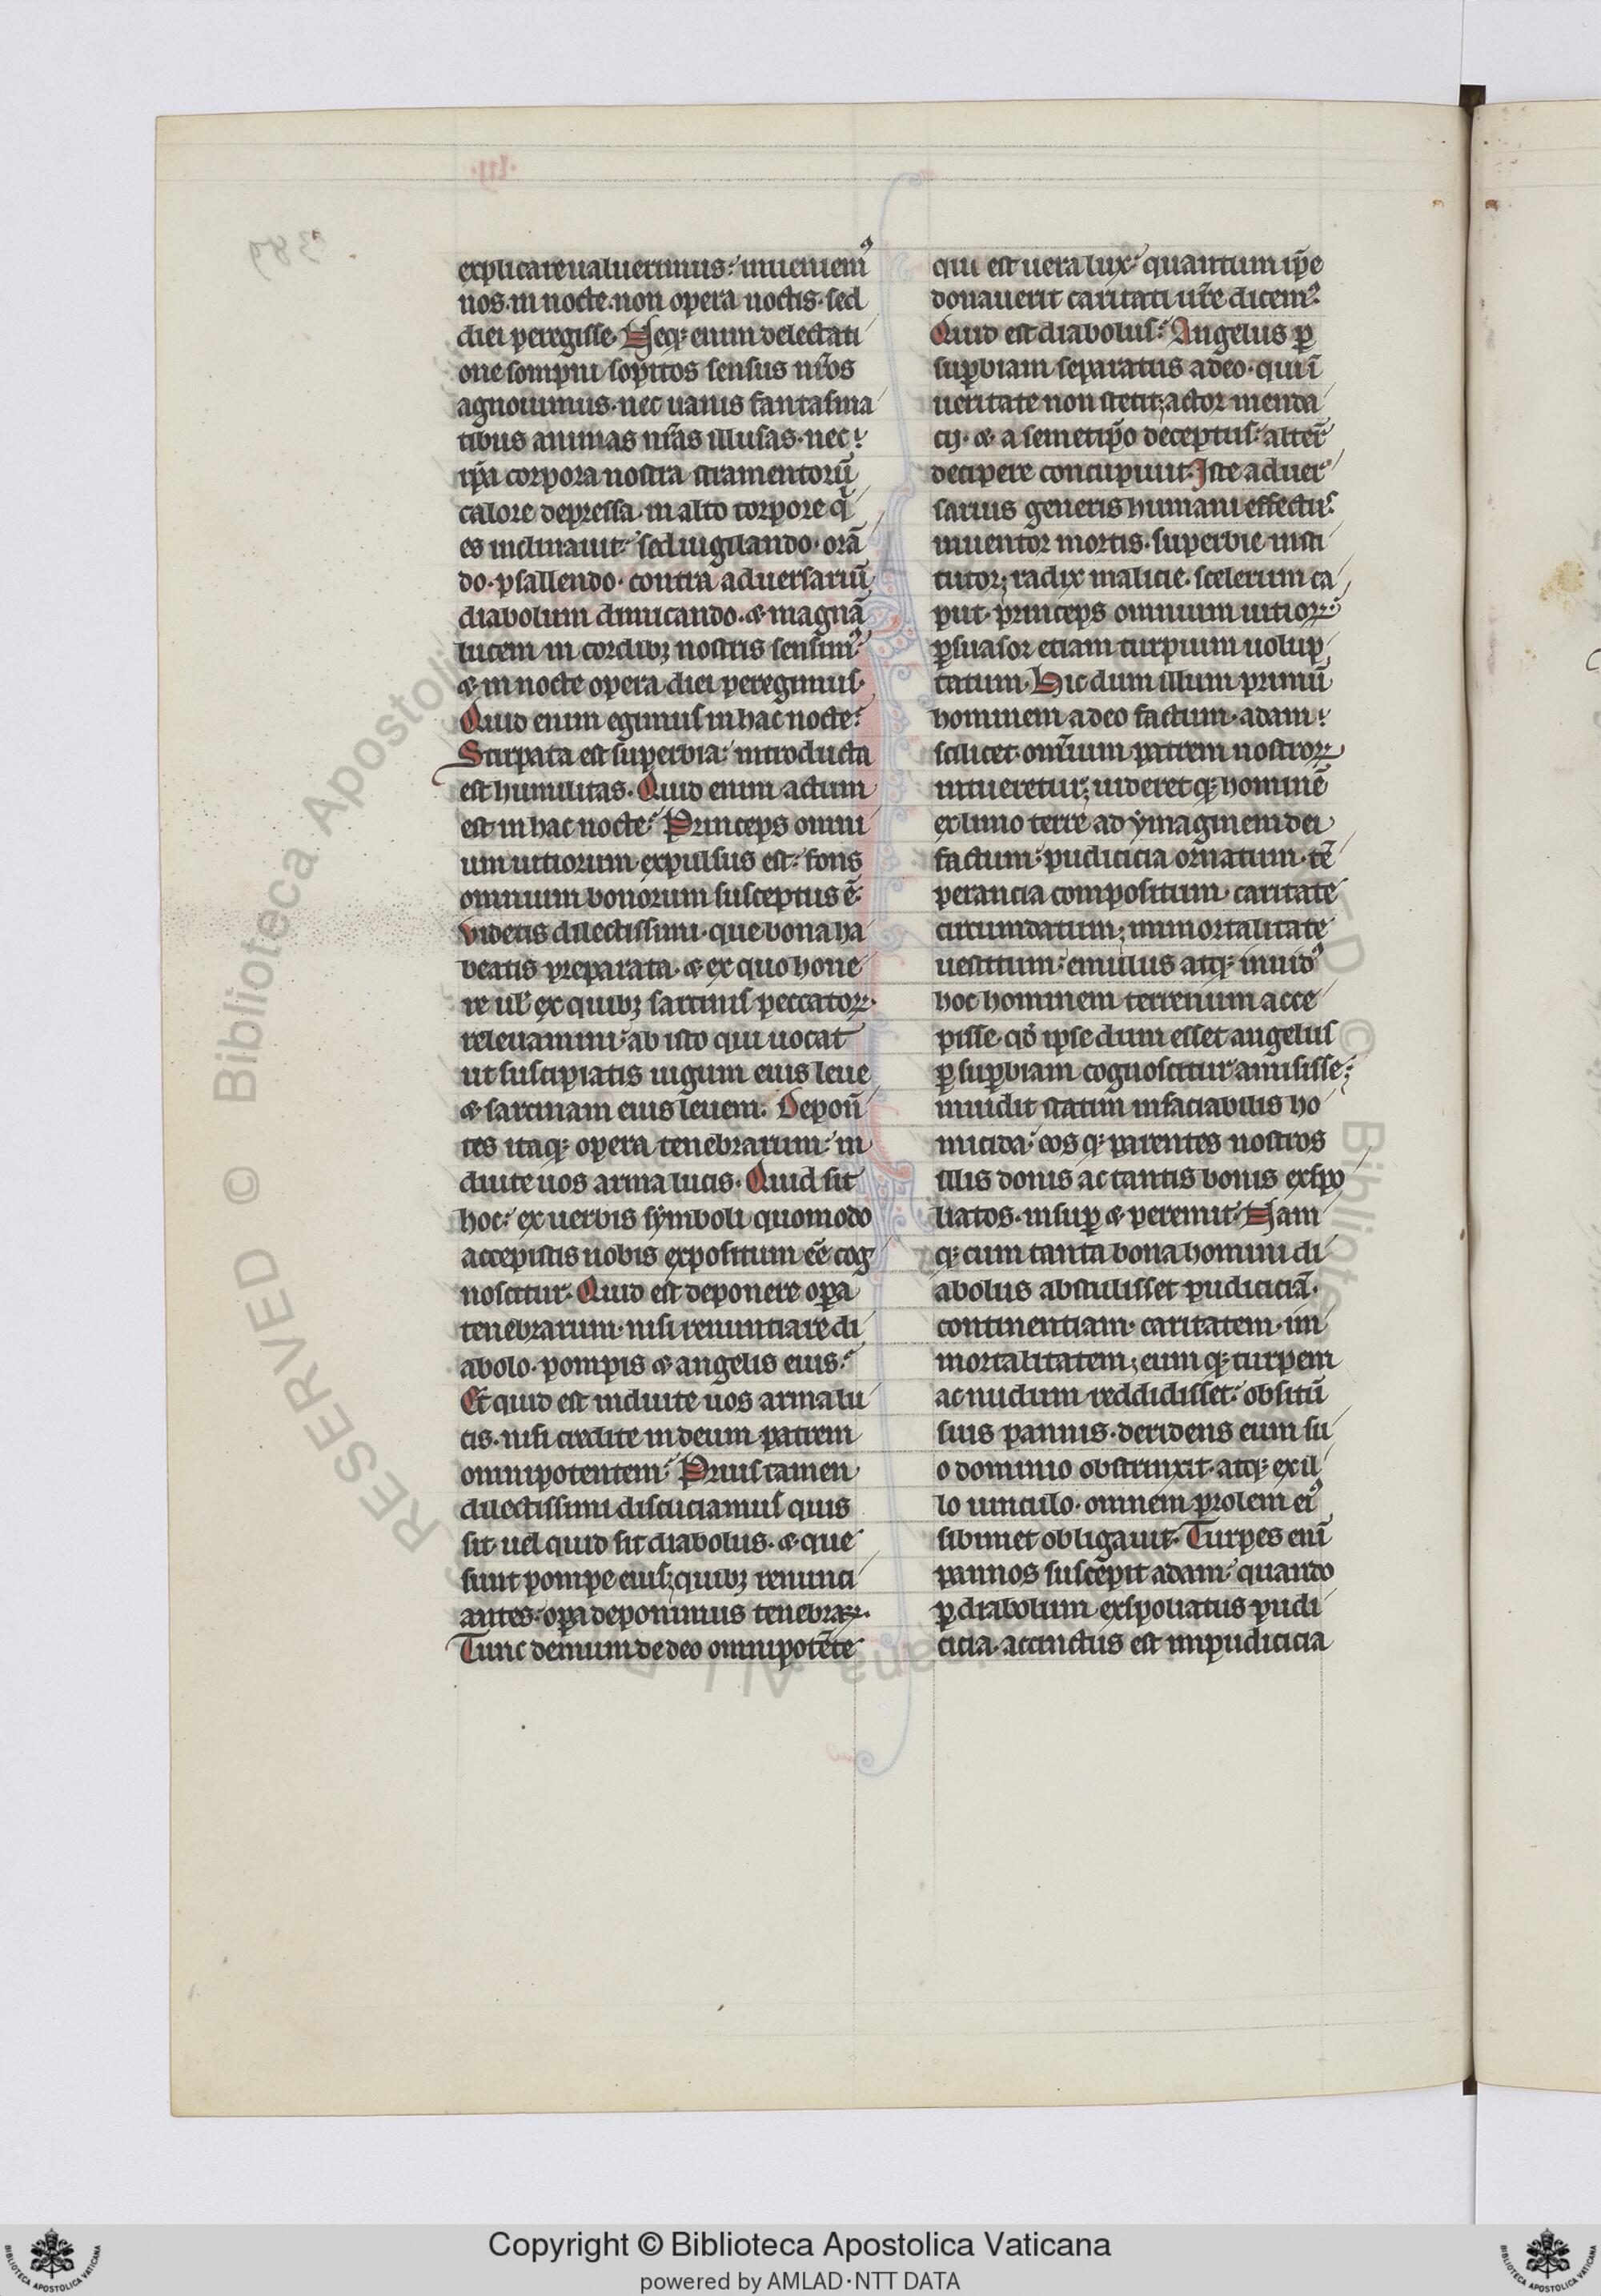 explicare ualuerimus: inueniemꝰ
nos in nocte non opera noctis· sed
diei peregisse. Neqꝫ enim delectati
one sompni sopitos sensus nr̄os
agnouimus· nec uanis fantasma
tibus animas nr̄as illusas· nec
ip̄a corpora nostra stramentorū
calore depressa· in alto torpore q̇
es inclinauit: sed uigilando· orā
do· psallendo· contra aduersariū
diabolum dimicando· ⁊ magnā
lucem in cordibꝫ nostris sensimꝰ
⁊ in nocte opera diei peregimus·
Quid enim egimus in hac nocte?
Stirpata est superbia: introducta
est humilitas. Quid enim actum
est in hac nocte? Princeps omni
um uitiorum expulsus est: fons
omnium bonorum susceptus ē·
Videtis dilectissimi· que bona ha
beatis preparata· ⁊ ex quo hone
re ul̄ ex quibꝫ sarcinis peccatoꝝ·
releuamini: ab isto qui uocat
ut suscipiatis iugum eius leue
⁊ sarcinam eius leuem. Depon̄
tes itaqꝫ opera tenebrarum: in
duite uos arma lucis. Quid sit
hoc: ex uerbis symboli quomodo
accepistis uobis expositum eē cog
noscitur. Quid est deponere oꝑa
tenebrarum· nisi renuntiare di
abolo· pompis ⁊ angelis eius?
Et quid est induite uos arma lu
cis· nisi credite in deum patrem
omnipotentem? Prius tamen
dilectissimi discuciamus quis
sit uel quid sit diabolus· ⁊ que
sunt pompe eius; quibꝫ renunci
antes: oꝑa deponimus tenebraꝝ.
Tunc demum de deo omnipotēte
qui est uera lux: quantum ip̄e
donauerit caritati ur̄e dicemꝰ.
Quid est diabolus? Angelus ꝑ
suꝑbiam separatus a deo· qui ī
ueritate non stetit; actor menda
cij· ⁊ a semetip̄o deceptus: alter̄
decipere concupiuit. Iste aduer
sarius generis humani effectus·
inuentor mortis· superbie insti
tutor; radix malicie· scelerum ca
put· princeps omnium uitioꝝ:
ꝑsuasor etiam turpium uolup
tatum. Hic dum illum primū
hominem a deo factum· adam
scilicet· omnium patrem nostroꝝ
intueretur; uideretqꝫ hominē
ex limo terre ad ymaginem dei
factum: pudicicia ornatum· tē
perancia compositum· caritate
circumdatum; immortalitate
uestitum: emulus atqꝫ inuidꝰ
hoc hominem terrenum acce
pisse· qđ ipse dum esset angelus
ꝑ suꝑbiam cognoscitur amisisse;
inuidit statim insaciabilis ho
micida: eosqꝫ parentes nostros
illis donis ac tantis bonis exspo
liatos· insuꝑ ⁊ peremit. Nam
qꝫ cum tanta bona homini di
abolus abstulisset pudiciciā·
continentiam· caritatem· im
mortalitatem; eumqꝫ turpem
ac nudum reddidisset: obsitū
suis pannis· deridens eum su
o dominio obstrinxit· atqꝫ ex il
lo uinculo· omnem prolem eiꝰ
sibimet obligauit. Turpes eni̅
pannos suscepit adam: quando
ꝑ diabolum exspoliatus pudi
cicia· accinctus est impudicicia
RESERVED © Biblioteca Apostolica
Copyright © Biblioteca Apostolica Vaticana
powered by AMLAD·NTT DATA